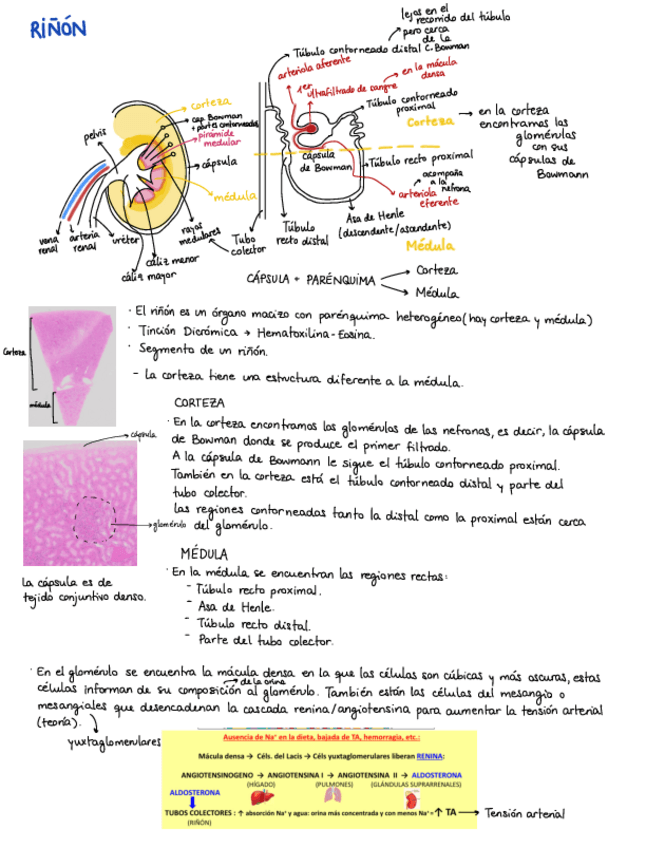 RIÑÓN
lejos en el
recorrido del túbulo
pero cerca
de la
C. Bowman
Túbulo contorneado distal
arteriola aferente
1er
ultrafiltrado de sangre
en la mácula
densa
Túbulo contorneado
proximal
Corteza
en la corteza
encontramos los
glomérulos
con sus
cápsulas de
Bowmann
corteza
cap. Bowman
+ partes contorneadas
pirámide
medular
pelvis
cápsula
médula
cápsula
de Bowman
Túbulo recto proximal
acompaña
a la
nefrona
arteriola
eferente
vena
renal
arteria
renal
uréter
rayos
medulares
cáliz menor
cáliz mayor
Tubo
colector
Túbulo
recto distal
Asa de Henle
(descendente/ascendente)
Médula
CÁPSULA + PARÉNQUIMA
Corteza
Médula
· El riñón es un órgano macizo con parénquima heterogéneo (hay corteza y médula)
· Tinción Dicrómica → Hematoxilina-Eosina.
· Segmento de un riñón.
- La corteza tiene una estructura diferente a la médula.
Corteza
médula
CORTEZA
· En la corteza encontramos los glomérulos de las nefronas, es decir, la cápsula
de Bowman donde se produce el primer filtrado.
A la cápsula de Bowmann le sigue el túbulo contorneado proximal.
También en la corteza está el túbulo contorneado distal y parte del
tubo colector.
Las regiones contorneadas tanto la distal como la proximal están cerca
del glomérulo.
cápsula
glomérulo
La cápsula es de
tejido conjuntivo denso.
MÉDULA
· En la médula se encuentran las regiones rectas:
- Túbulo recto proximal.
- Asa de Henle.
- Túbulo recto distal.
- Parte del tubo colector.
· En el glomérulo se encuentra la mácula densa en la que las células son cúbicas y más oscuras, estas
de la orina
células informan de su composición al glomérulo. También están las células del mesangio o
mesangiales que desencadenan la cascada renina/angiotensina para aumentar la tensión arterial
(teoría).
yuxtaglomerulares
Ausencia de Na⁺ en la dieta, bajada de TA, hemorragia, etc.:
Mácula densa → Céls. del Lacis → Céls yuxtaglomerulares liberan RENINA:
ANGIOTENSINOGENO → ANGIOTENSINA I → ANGIOTENSINA II → ALDOSTERONA
(HÍGADO) (PULMONES) (GLÁNDULAS SUPRARRENALES)
ALDOSTERONA
TUBOS COLECTORES : ↑ absorción Na⁺ y agua: orina más concentrada y con menos Na⁺ = ↑ TA → Tensión arterial
(RIÑÓN)